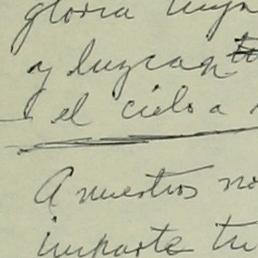 gloria tuya
y luzcan
el cielo a
A nuestros no
imparte tu